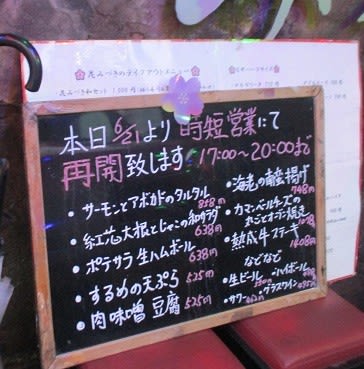 花みづきのテイクアウトメニュー
本日6/1より時短営業にて
再開致します 17:00～20:00まで
・サーモンとアボカドのタルタル
858円
・紅芯大根とじゃこの和サラダ
638円
・ポテサラ生ハムボール
638円
・するめの天ぷら 525円
・肉味噌豆腐 525円
・海老の南蛮揚げ
748円
・カマンベールチーズの
丸ごとオーブン焼き
・熟成牛ステーキ
1408円
などなど
・生ビール ・ハイボール
・サワー ・グラスワイン